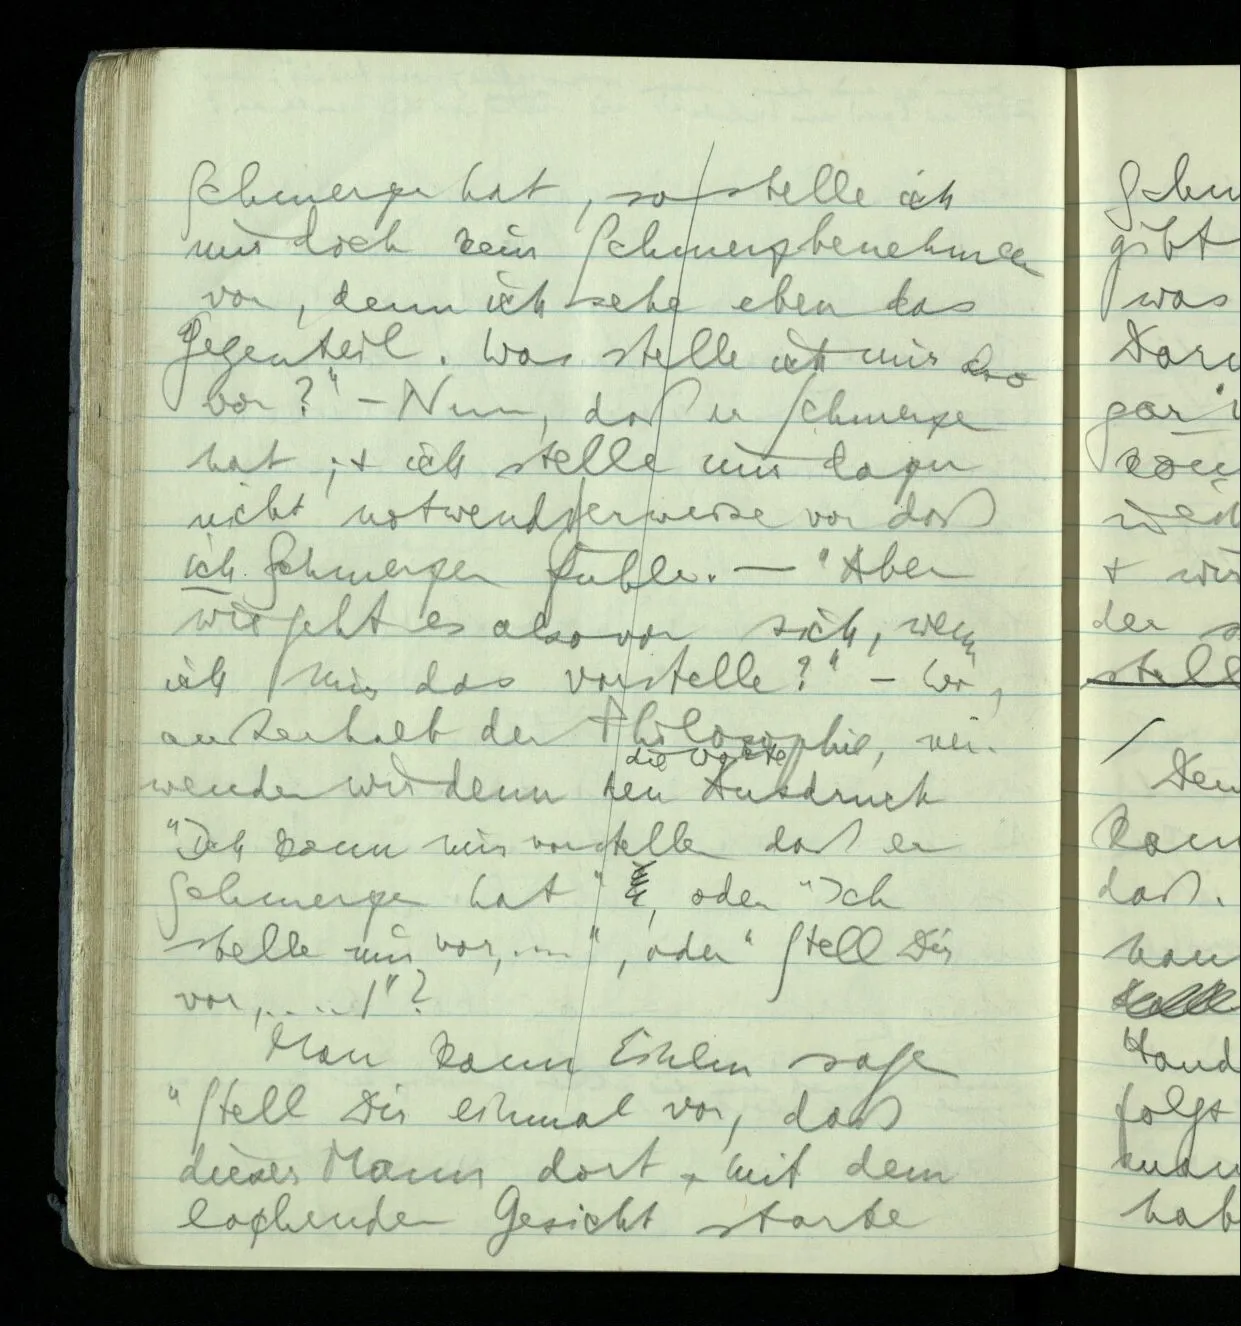 Schmerzen hat, so stelle ich
mir doch kein Schmerzbenehmen
vor, denn ich sehe eben das
Gegenteil. Was stelle ich mir also
vor?" – Nun, daß er Schmerzen
hat; + ich stelle mir dazu
nicht notwendigerweise vor daß
ich Schmerzen fühle. — "Aber
wie geht es also vor sich, wenn
ich mir das vorstelle?" – Wo,
außerhalb der Philosophie, ver-
die Worte
wenden wir denn den Ausdruck
"Ich kann mir vorstellen daß er
Schmerzen hat", oder "Ich
stelle mir vor, ....", oder "Stell Dir
vor, ....!"?
Man kann Einem sagen
"Stell Dir einmal vor, daß
dieser Mann dort mit dem
lachenden Gesicht starke
Schm
gibt
was
gar
der
Den
daß.
folgt